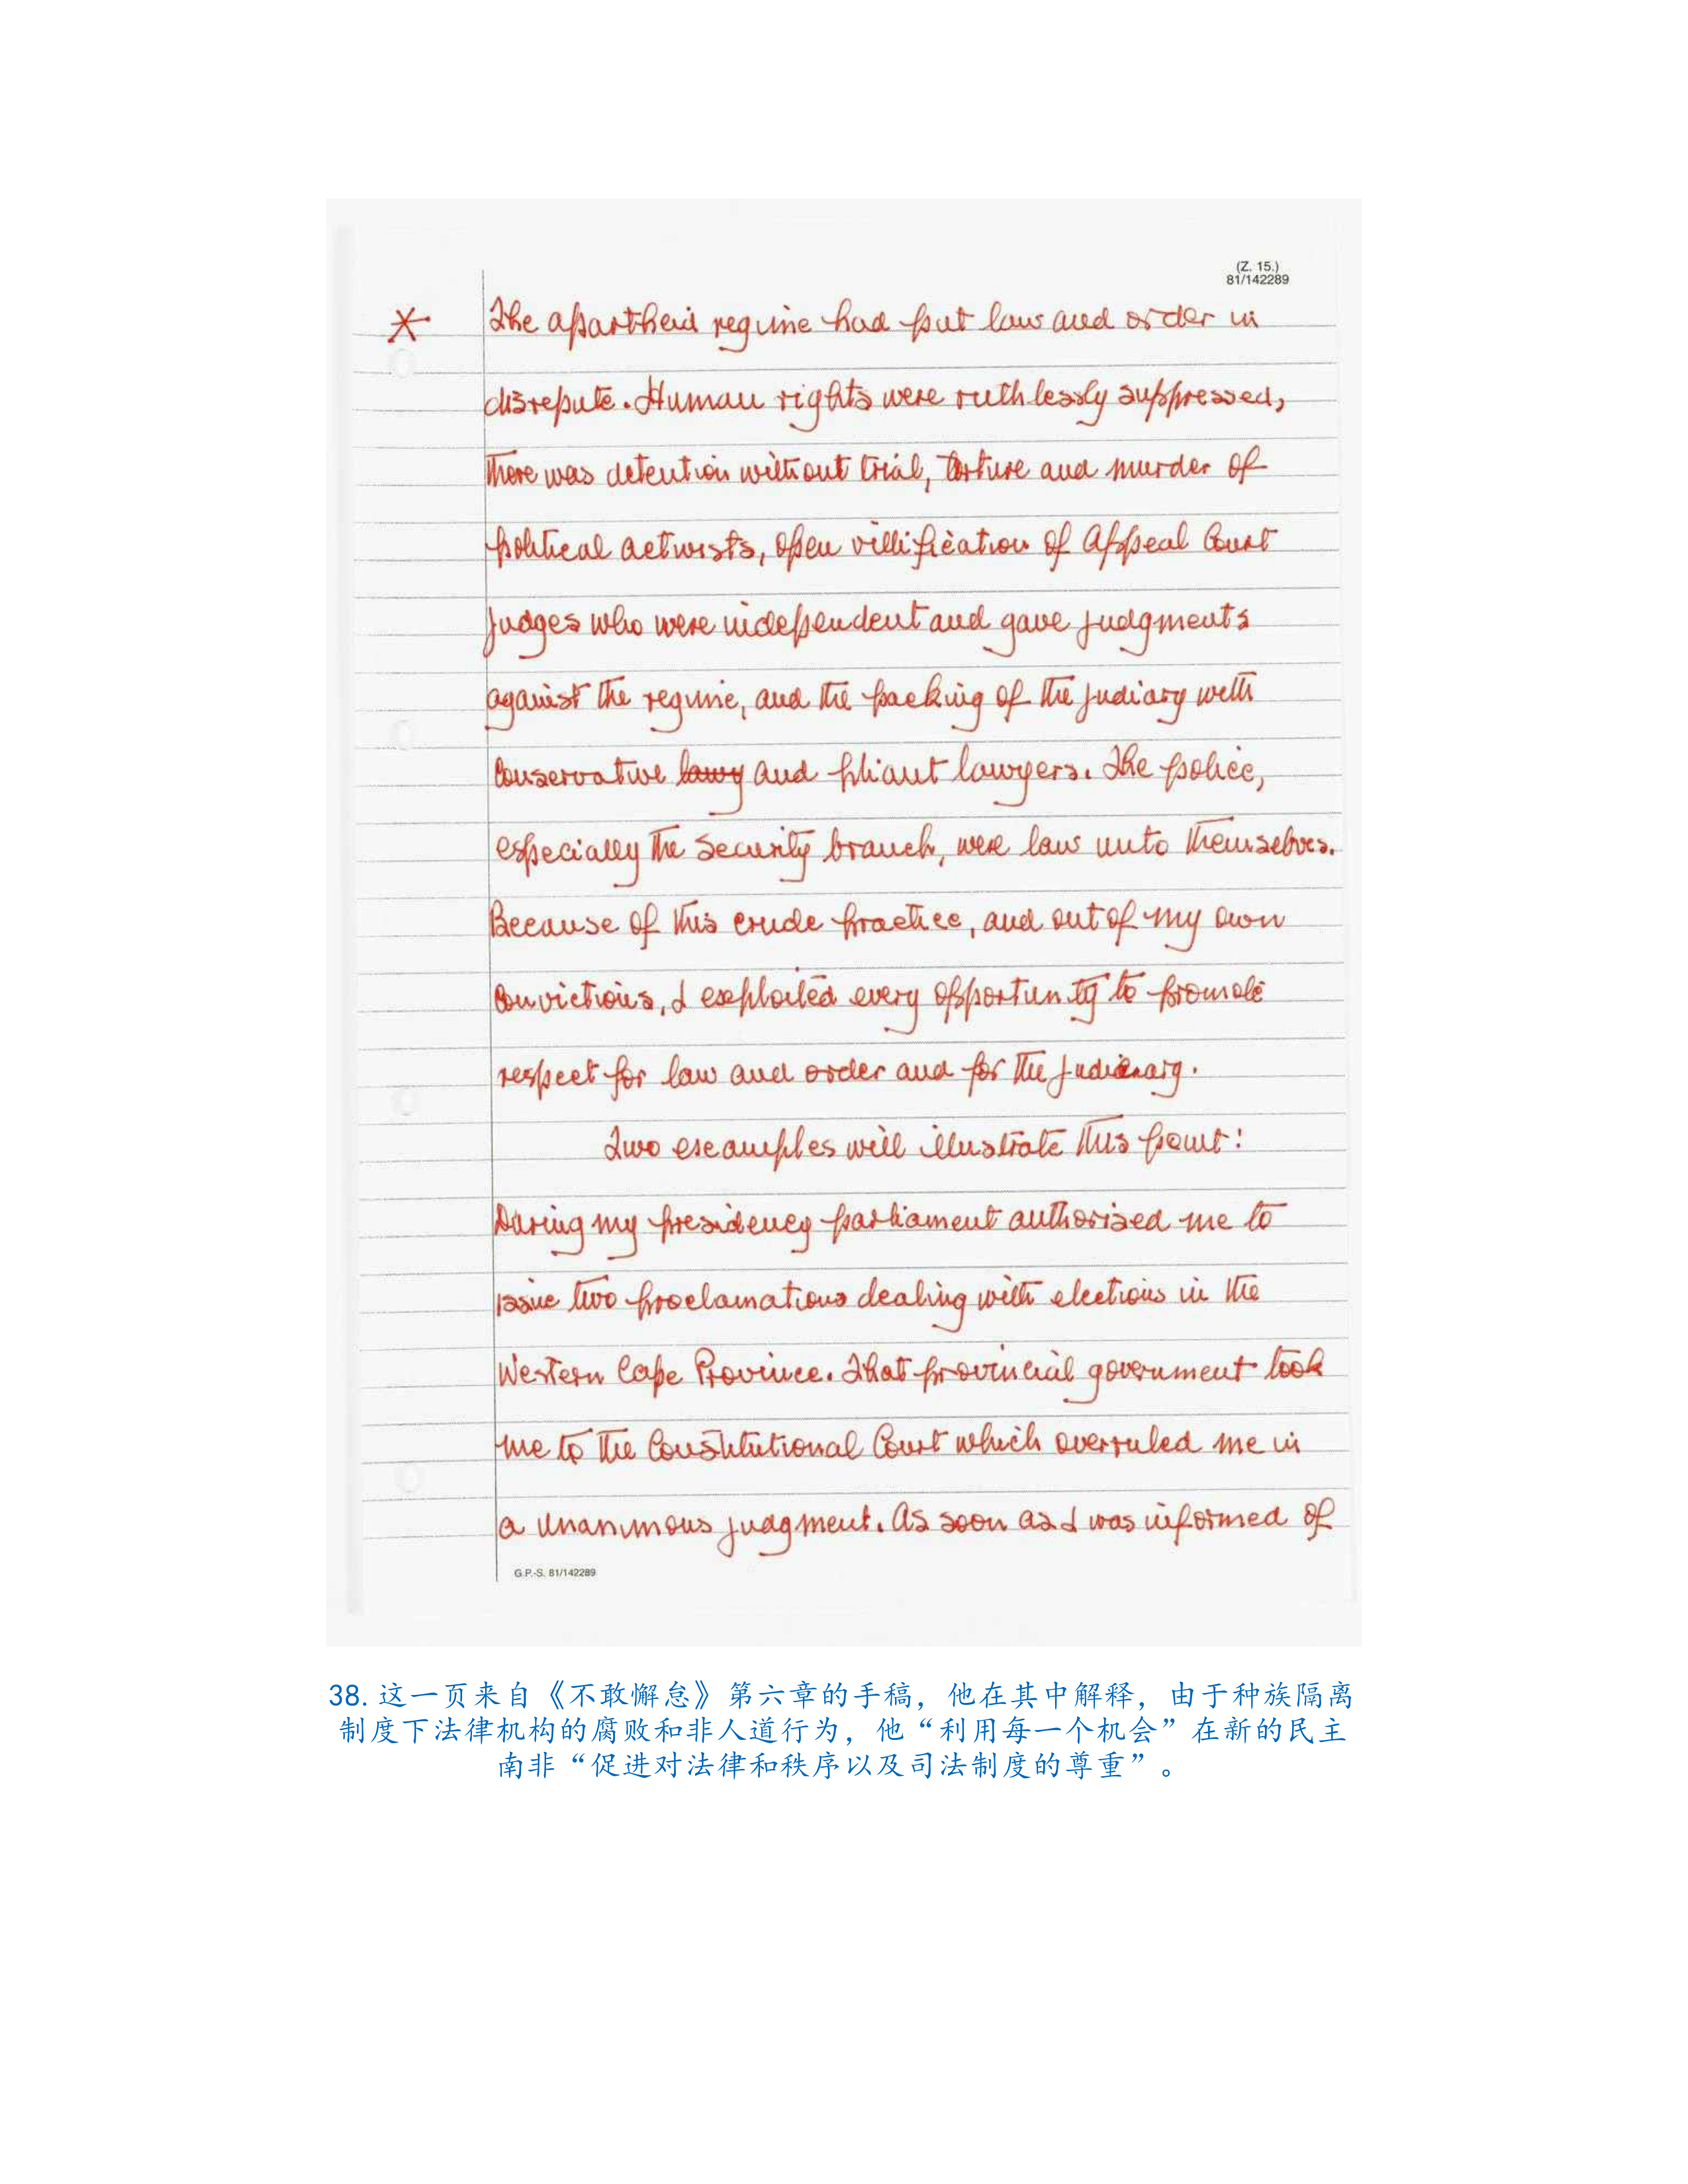 (Z. 15.)
81/142289
* The apartheid regime had put law and order in
disrepute. Human rights were ruthlessly suppressed,
there was detention without trial, torture and murder of
political activists, open villification of Appeal Court
judges who were independent and gave judgments
against the regime, and the packing of the judiary with
conservative lawy and pliant lawyers. The police,
especially the security branch, were law unto themselves.
Because of this crude practice, and out of my own
convictions, I exploited every opportunity to promote
respect for law and order and for the judiciary.
Two examples will illustrate this point:
During my presidency parliament authorised me to
issue two proclamations dealing with elections in the
Western Cape Province. That provincial government took
me to the Constitutional Court which overruled me in
a unanimous judgment. As soon as I was informed of
G.P.-S. 81/142289
38. 这一页来自《不敢懈怠》第六章的手稿，他在其中解释，由于种族隔离
制度下法律机构的腐败和非人道行为，他“利用每一个机会”在新的民主
南非“促进对法律和秩序以及司法制度的尊重”。